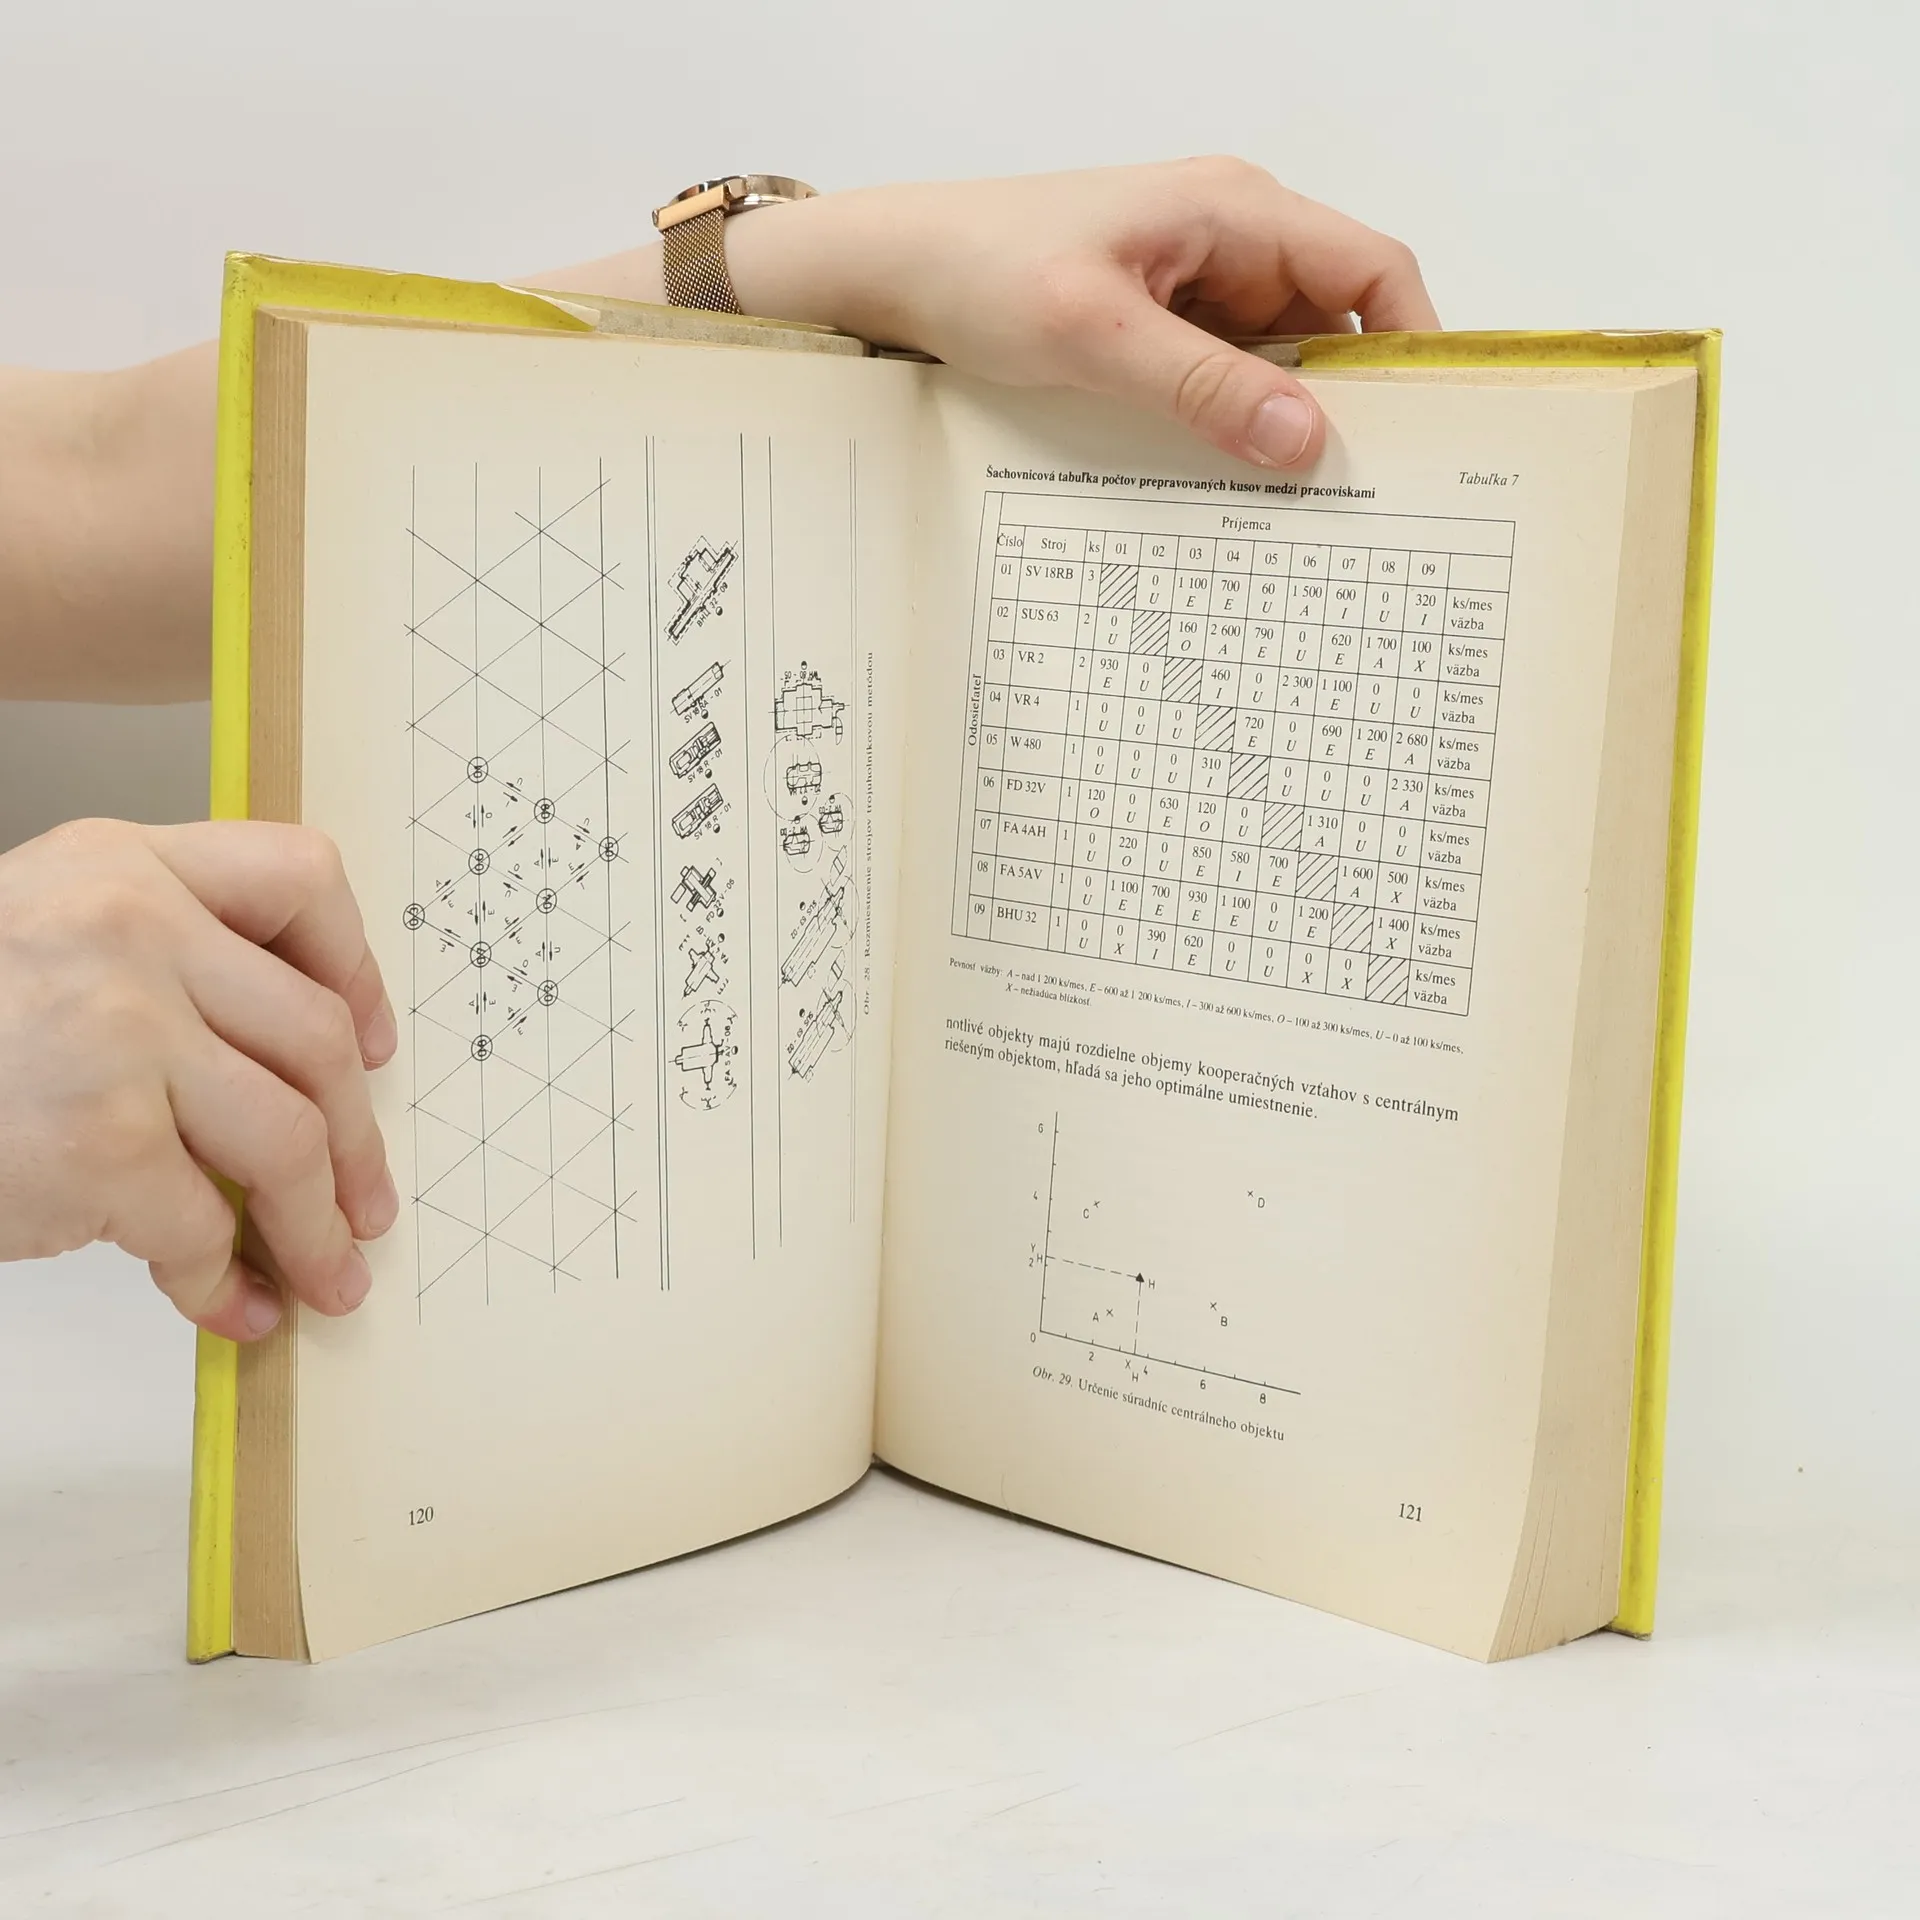 BHU 32-09
SV 18 RA-01
SV 18 R-01
SV 18 R-01
FD 32V-06
FA 5 AV-08
SUS 63-02
SUS 63-02
Obr. 28 Rozmiestnenie strojov trojuholníkovou metódou
120
Tabuľka 7
Šachovnicová tabuľka počtov prepravovaných kusov medzi pracoviskami
Príjemca
Číslo Stroj ks 01 02 03 04 05 06 07 08 09
Odosielateľ
01 SV 18RB 3 0 1 100 700 60 1 500 600 0 320 ks/mes
U E E U A I U I väzba
02 SUS 63 2 0 160 2 600 790 0 620 1 700 100 ks/mes
U O A E U E A X väzba
03 VR 2 2 930 0 460 0 2 300 1 100 0 0 ks/mes
E U I U A E U U väzba
04 VR 4 1 0 0 0 720 0 690 1 200 2 680 ks/mes
U U U E U E E A väzba
05 W 480 1 0 0 0 310 0 0 0 2 330 ks/mes
U U U I U U U A väzba
06 FD 32V 1 120 0 630 120 0 1 310 0 0 ks/mes
O U E O U A U U väzba
07 FA 4AH 1 0 220 0 850 580 700 1 600 500 ks/mes
U O U E I E A X väzba
08 FA 5AV 1 0 1 100 700 930 1 100 0 1 200 1 400 ks/mes
U E E E E U E X väzba
09 BHU 32 1 0 0 390 620 0 0 0 0 ks/mes
U X I E U U X X väzba
Pevnosť väzby: A – nad 1 200 ks/mes, E – 600 až 1 200 ks/mes, I – 300 až 600 ks/mes, O – 100 až 300 ks/mes, U – 0 až 100 ks/mes,
X – nežiadúca blízkosť
notlivé objekty majú rozdielne objemy kooperačných vzťahov s centrálnym
riešeným objektom, hľadá sa jeho optimálne umiestnenie.
6
4
C
D
Y H
2
H
A
B
0
2 X H 4 6 8
Obr. 29. Určenie súradníc centrálneho objektu
121